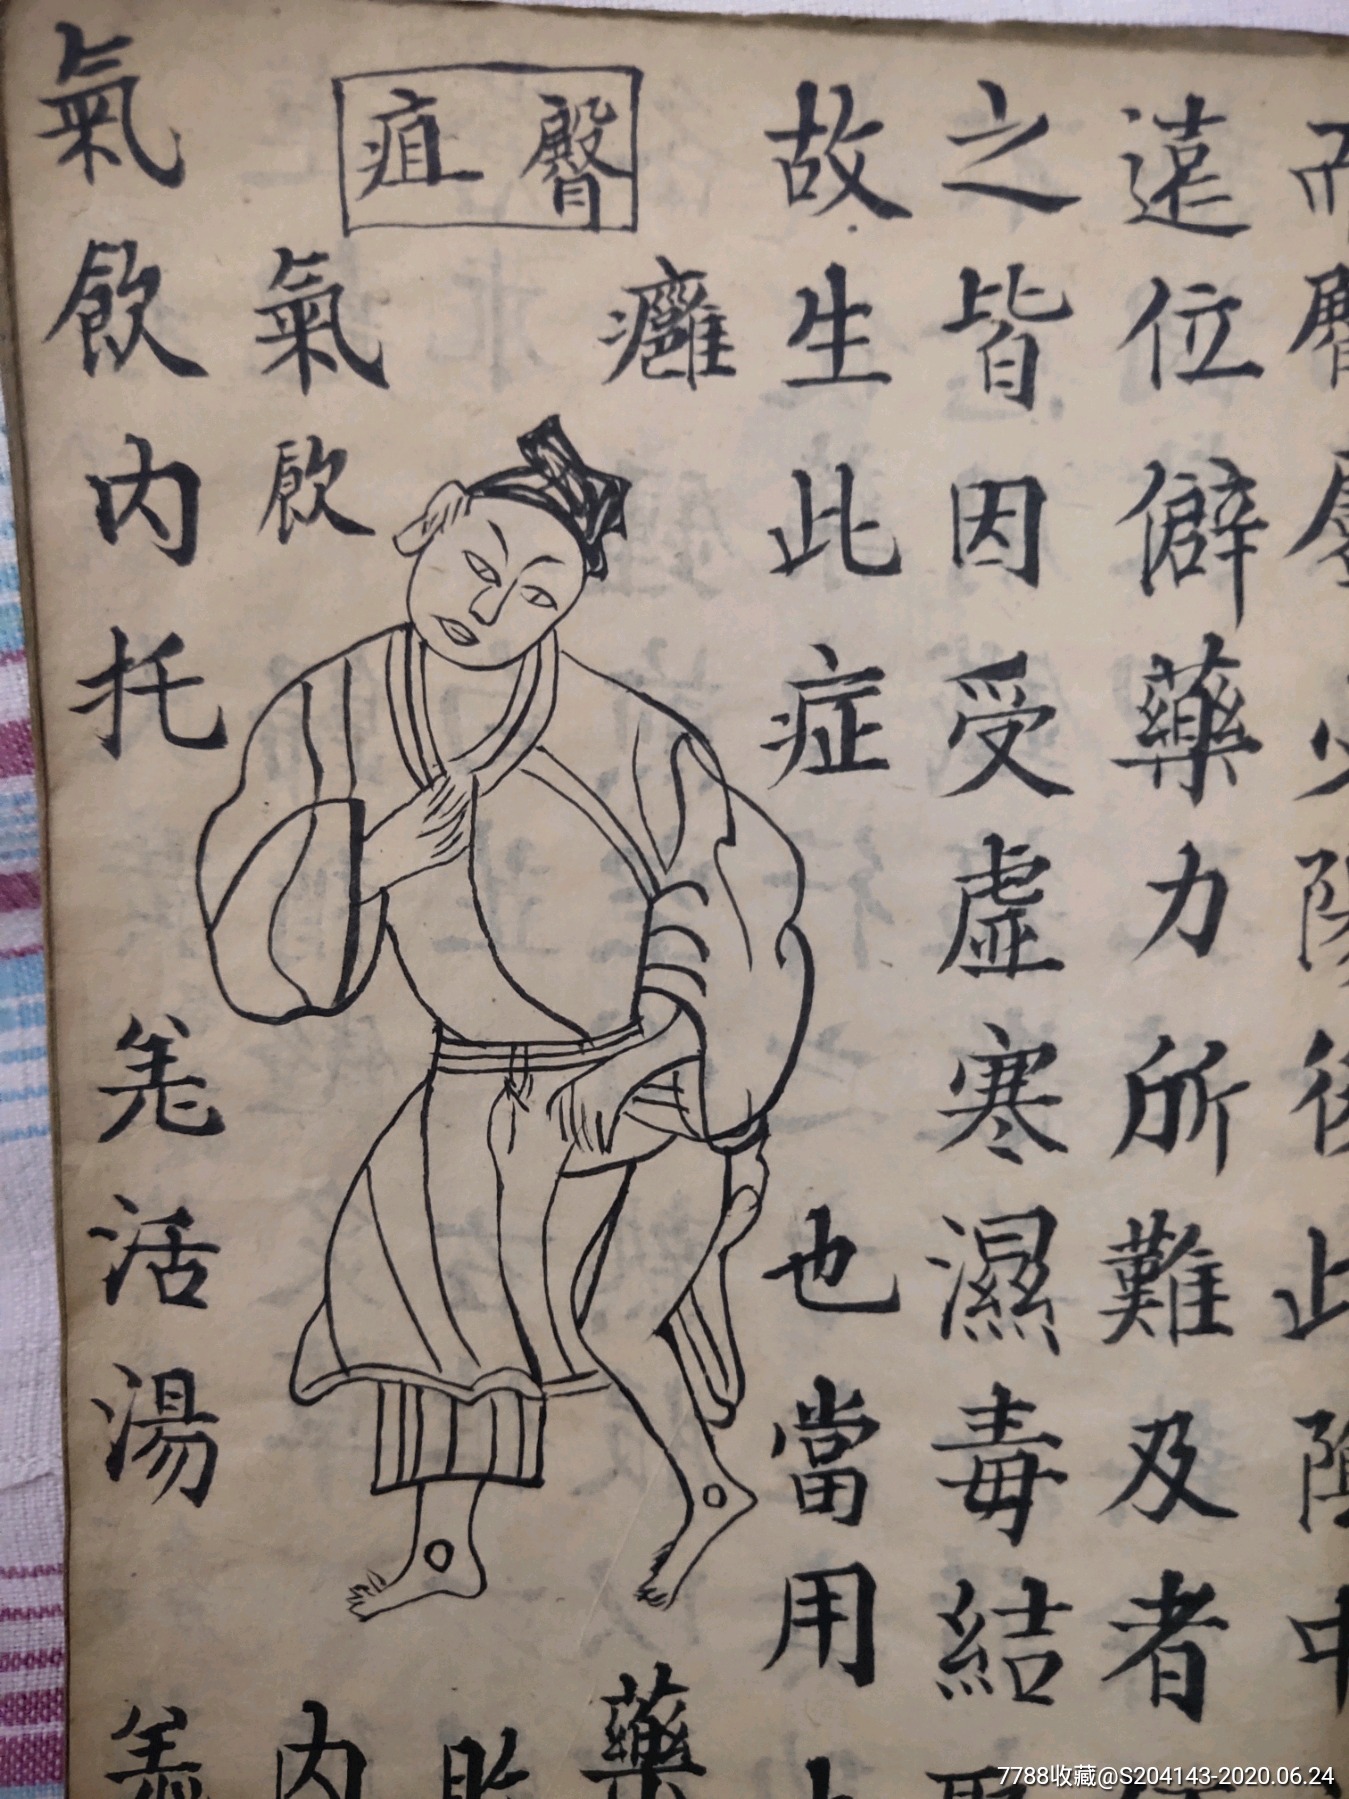 遠位僻藥力所難及者
之皆因受虛寒濕毒結
故生此症也當用
臀疽
癰
藥
氣飲
内
氣飲内托羌活湯
7788收藏@S204143-2020.06.24